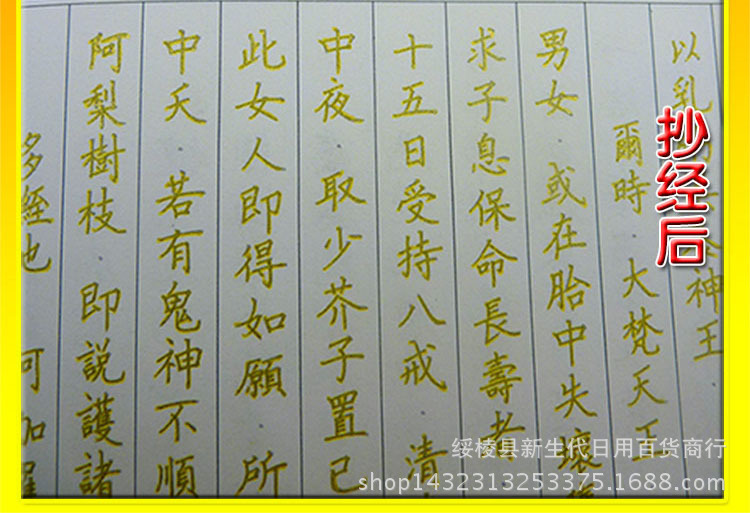 以乳
神王
爾時 大梵天王
男女 或在胎中失壞
求子息保命長壽者
十五日受持八戒 清
中夜 取少芥子置已
此女人即得如願 所
中夭 若有鬼神不順
阿梨樹枝 即說護諸
多經也
抄经后
绥棱县新生代日用百货商行
shop1432313253375.1688.com